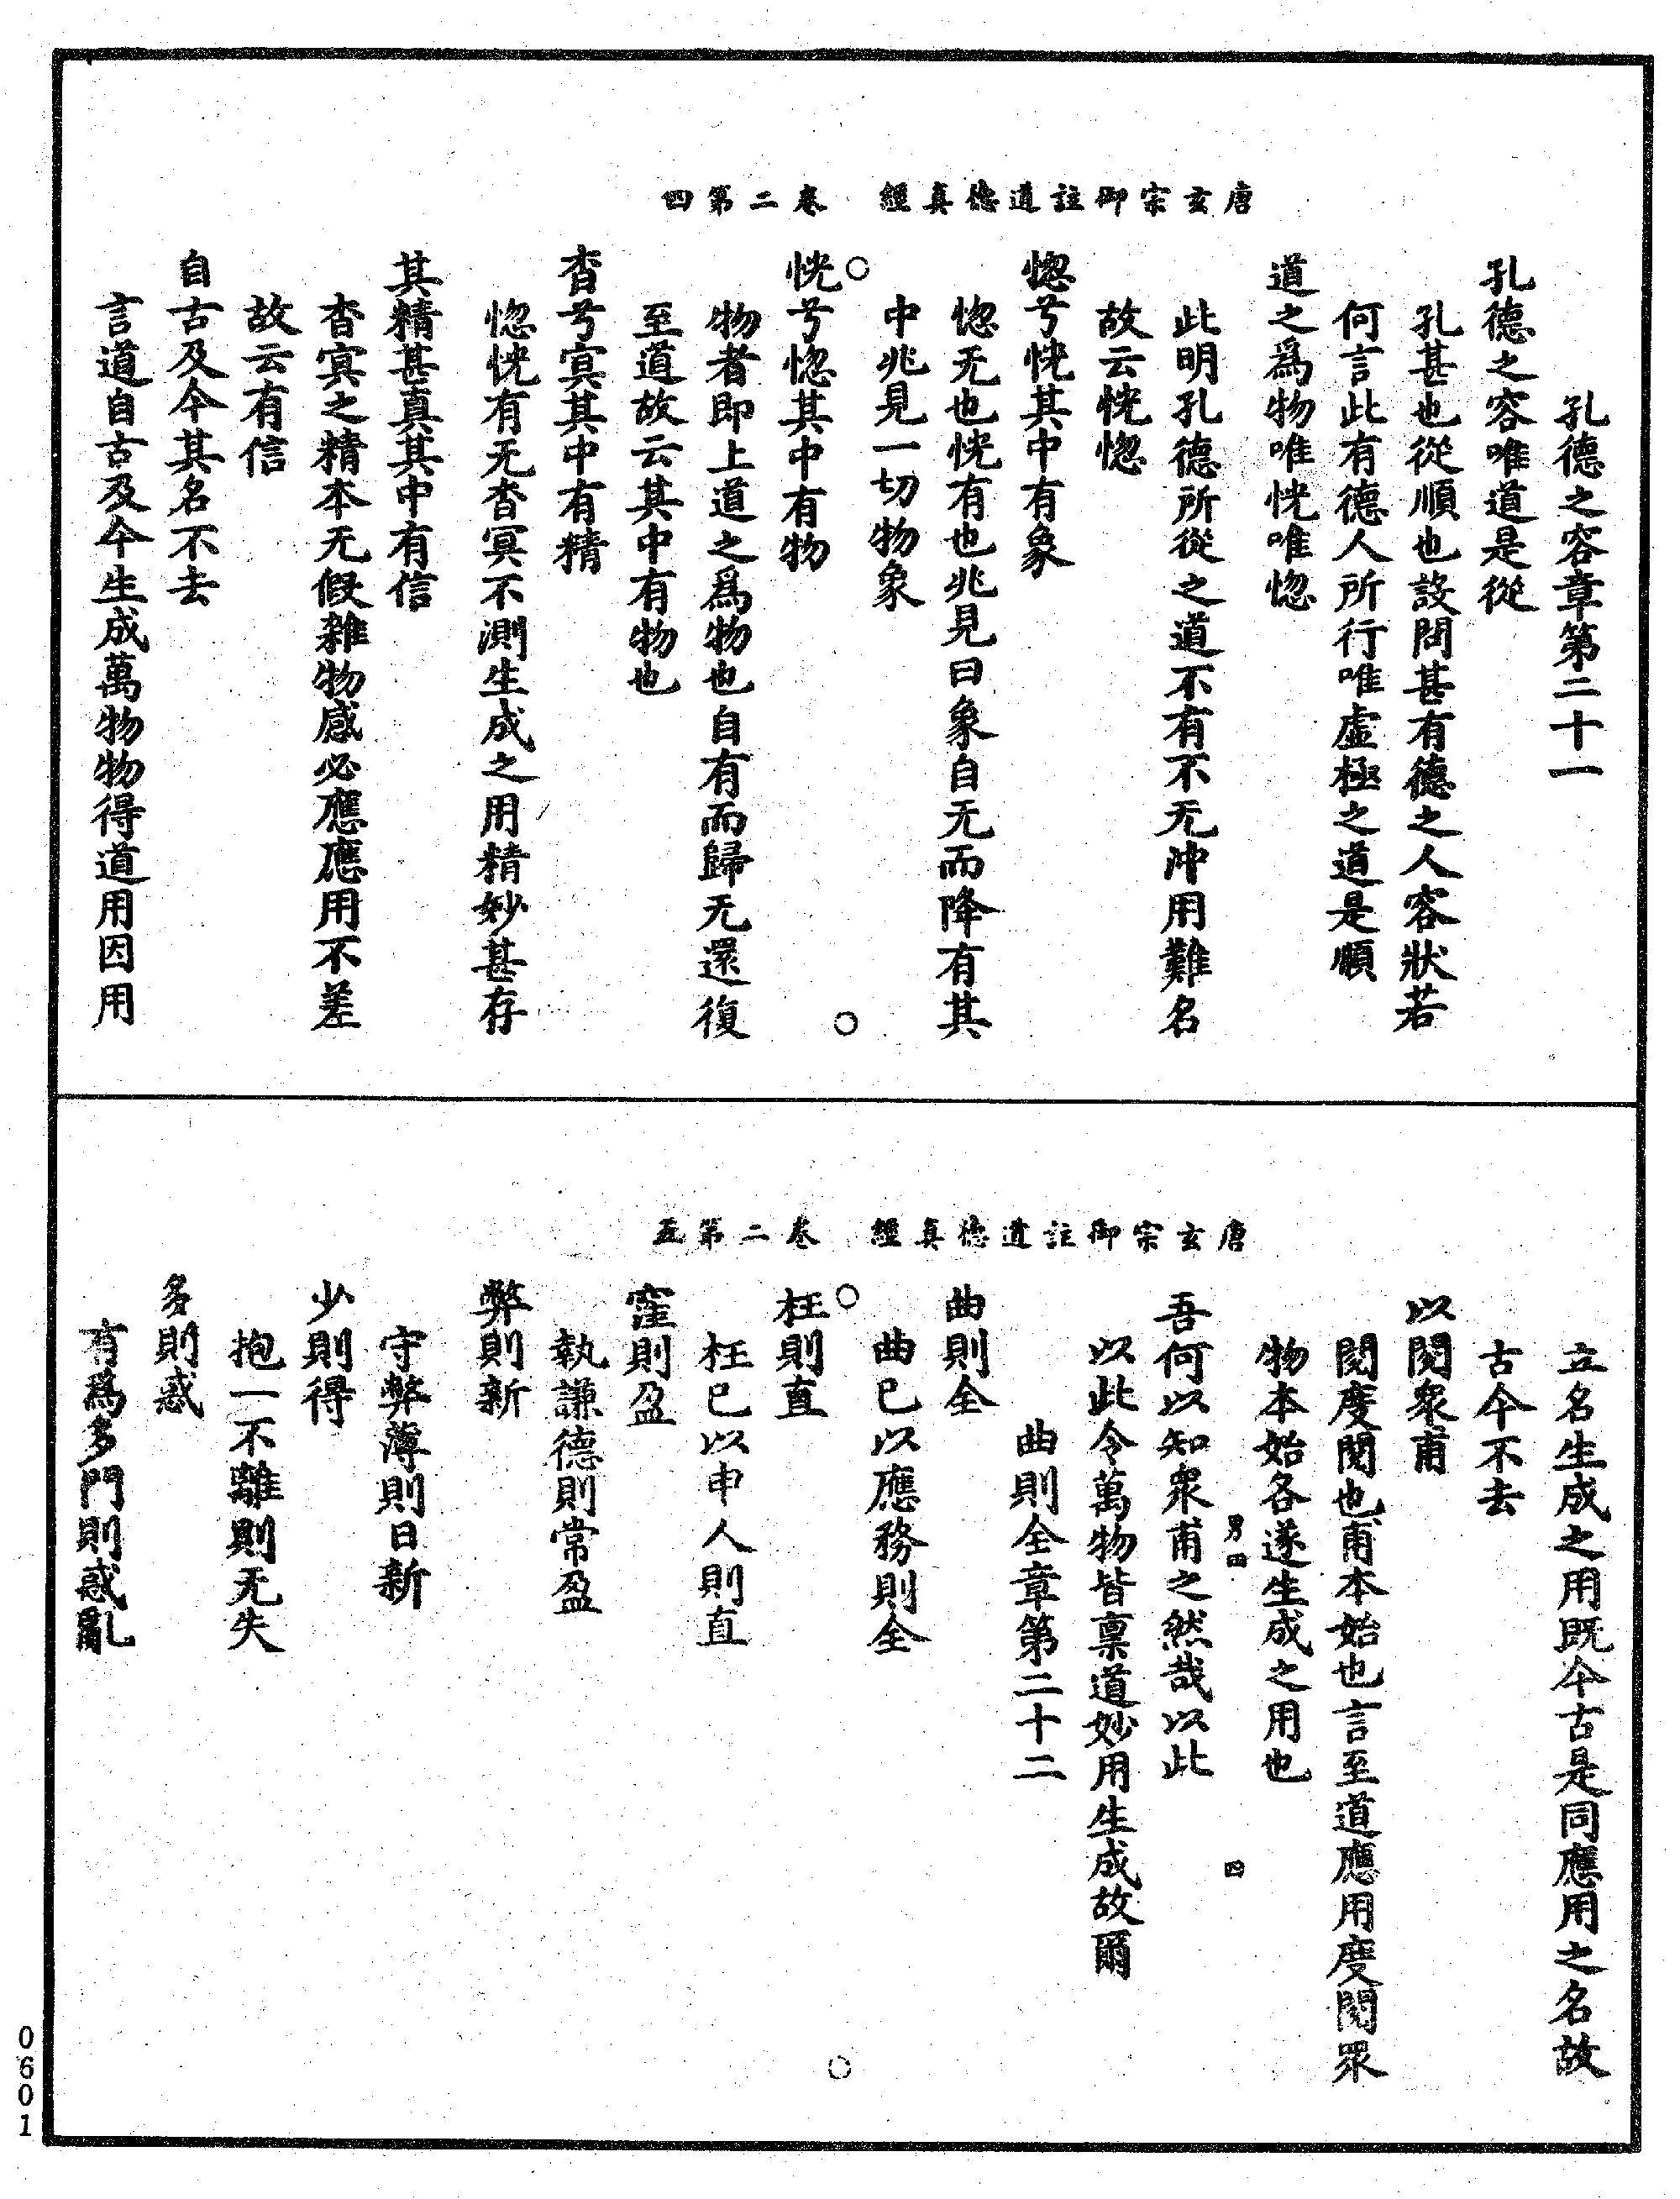 唐玄宗御註道德真經　卷二第四
孔德之容章第二十一
孔德之容唯道是從
孔甚也從順也設問甚有德之人容狀若
何言此有德人所行唯虛極之道是順
道之爲物唯恍唯惚
此明孔德所從之道不有不无沖用難名
故云恍惚
惚兮恍其中有象
惚无也恍有也兆見曰象自无而降有其
中兆見一切物象
恍兮惚其中有物
物者即上道之爲物也自有而歸无還復
至道故云其中有物也
杳兮冥其中有精
惚恍有无杳冥不測生成之用精妙甚存
其精甚真其中有信
杳冥之精本无假雜物感必應應用不差
故云有信
自古及今其名不去
言道自古及今生成萬物物得道用因用
唐玄宗御註道德真經　卷二第五
立名生成之用既今古是同應用之名故
古今不去
以閱衆甫
閱度閱也甫本始也言至道應用度閱眾
物本始各遂生成之用也
男四　四
吾何以知衆甫之然哉以此
以此令萬物皆稟道妙用生成故爾
曲則全章第二十二
曲則全
曲已以應務則全
枉則直
枉已以申人則直
窪則盈
執謙德則常盈
弊則新
守弊薄則日新
少則得
抱一不離則无失
多則惑
有爲多門則惑亂
0601